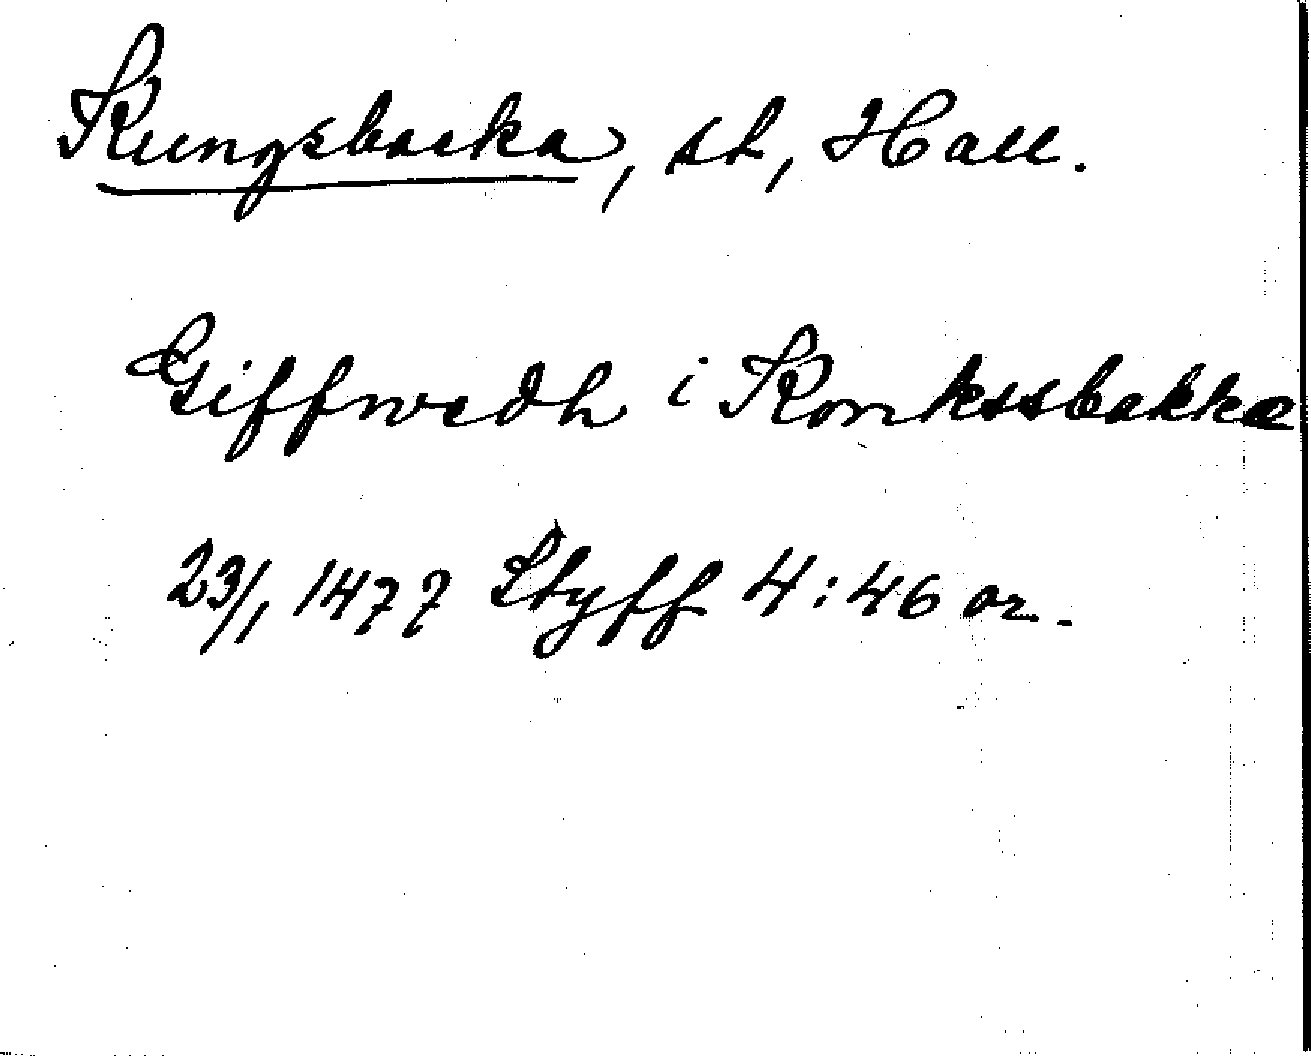 Kungsbacka, st, Hall.
Giffwedh i Konkssbakkæ
23/1 1477 Styff 4:46 or.